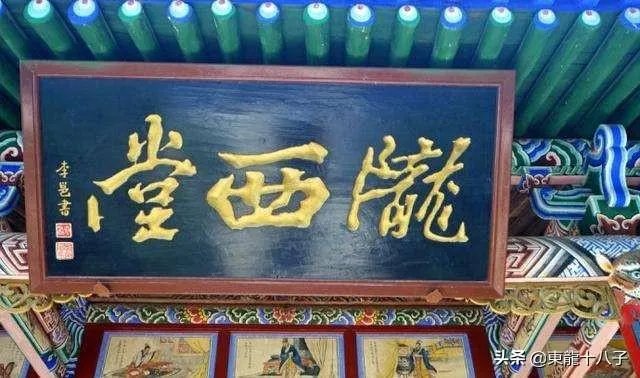 隴西堂
李邕書
头条 @東龍十八子